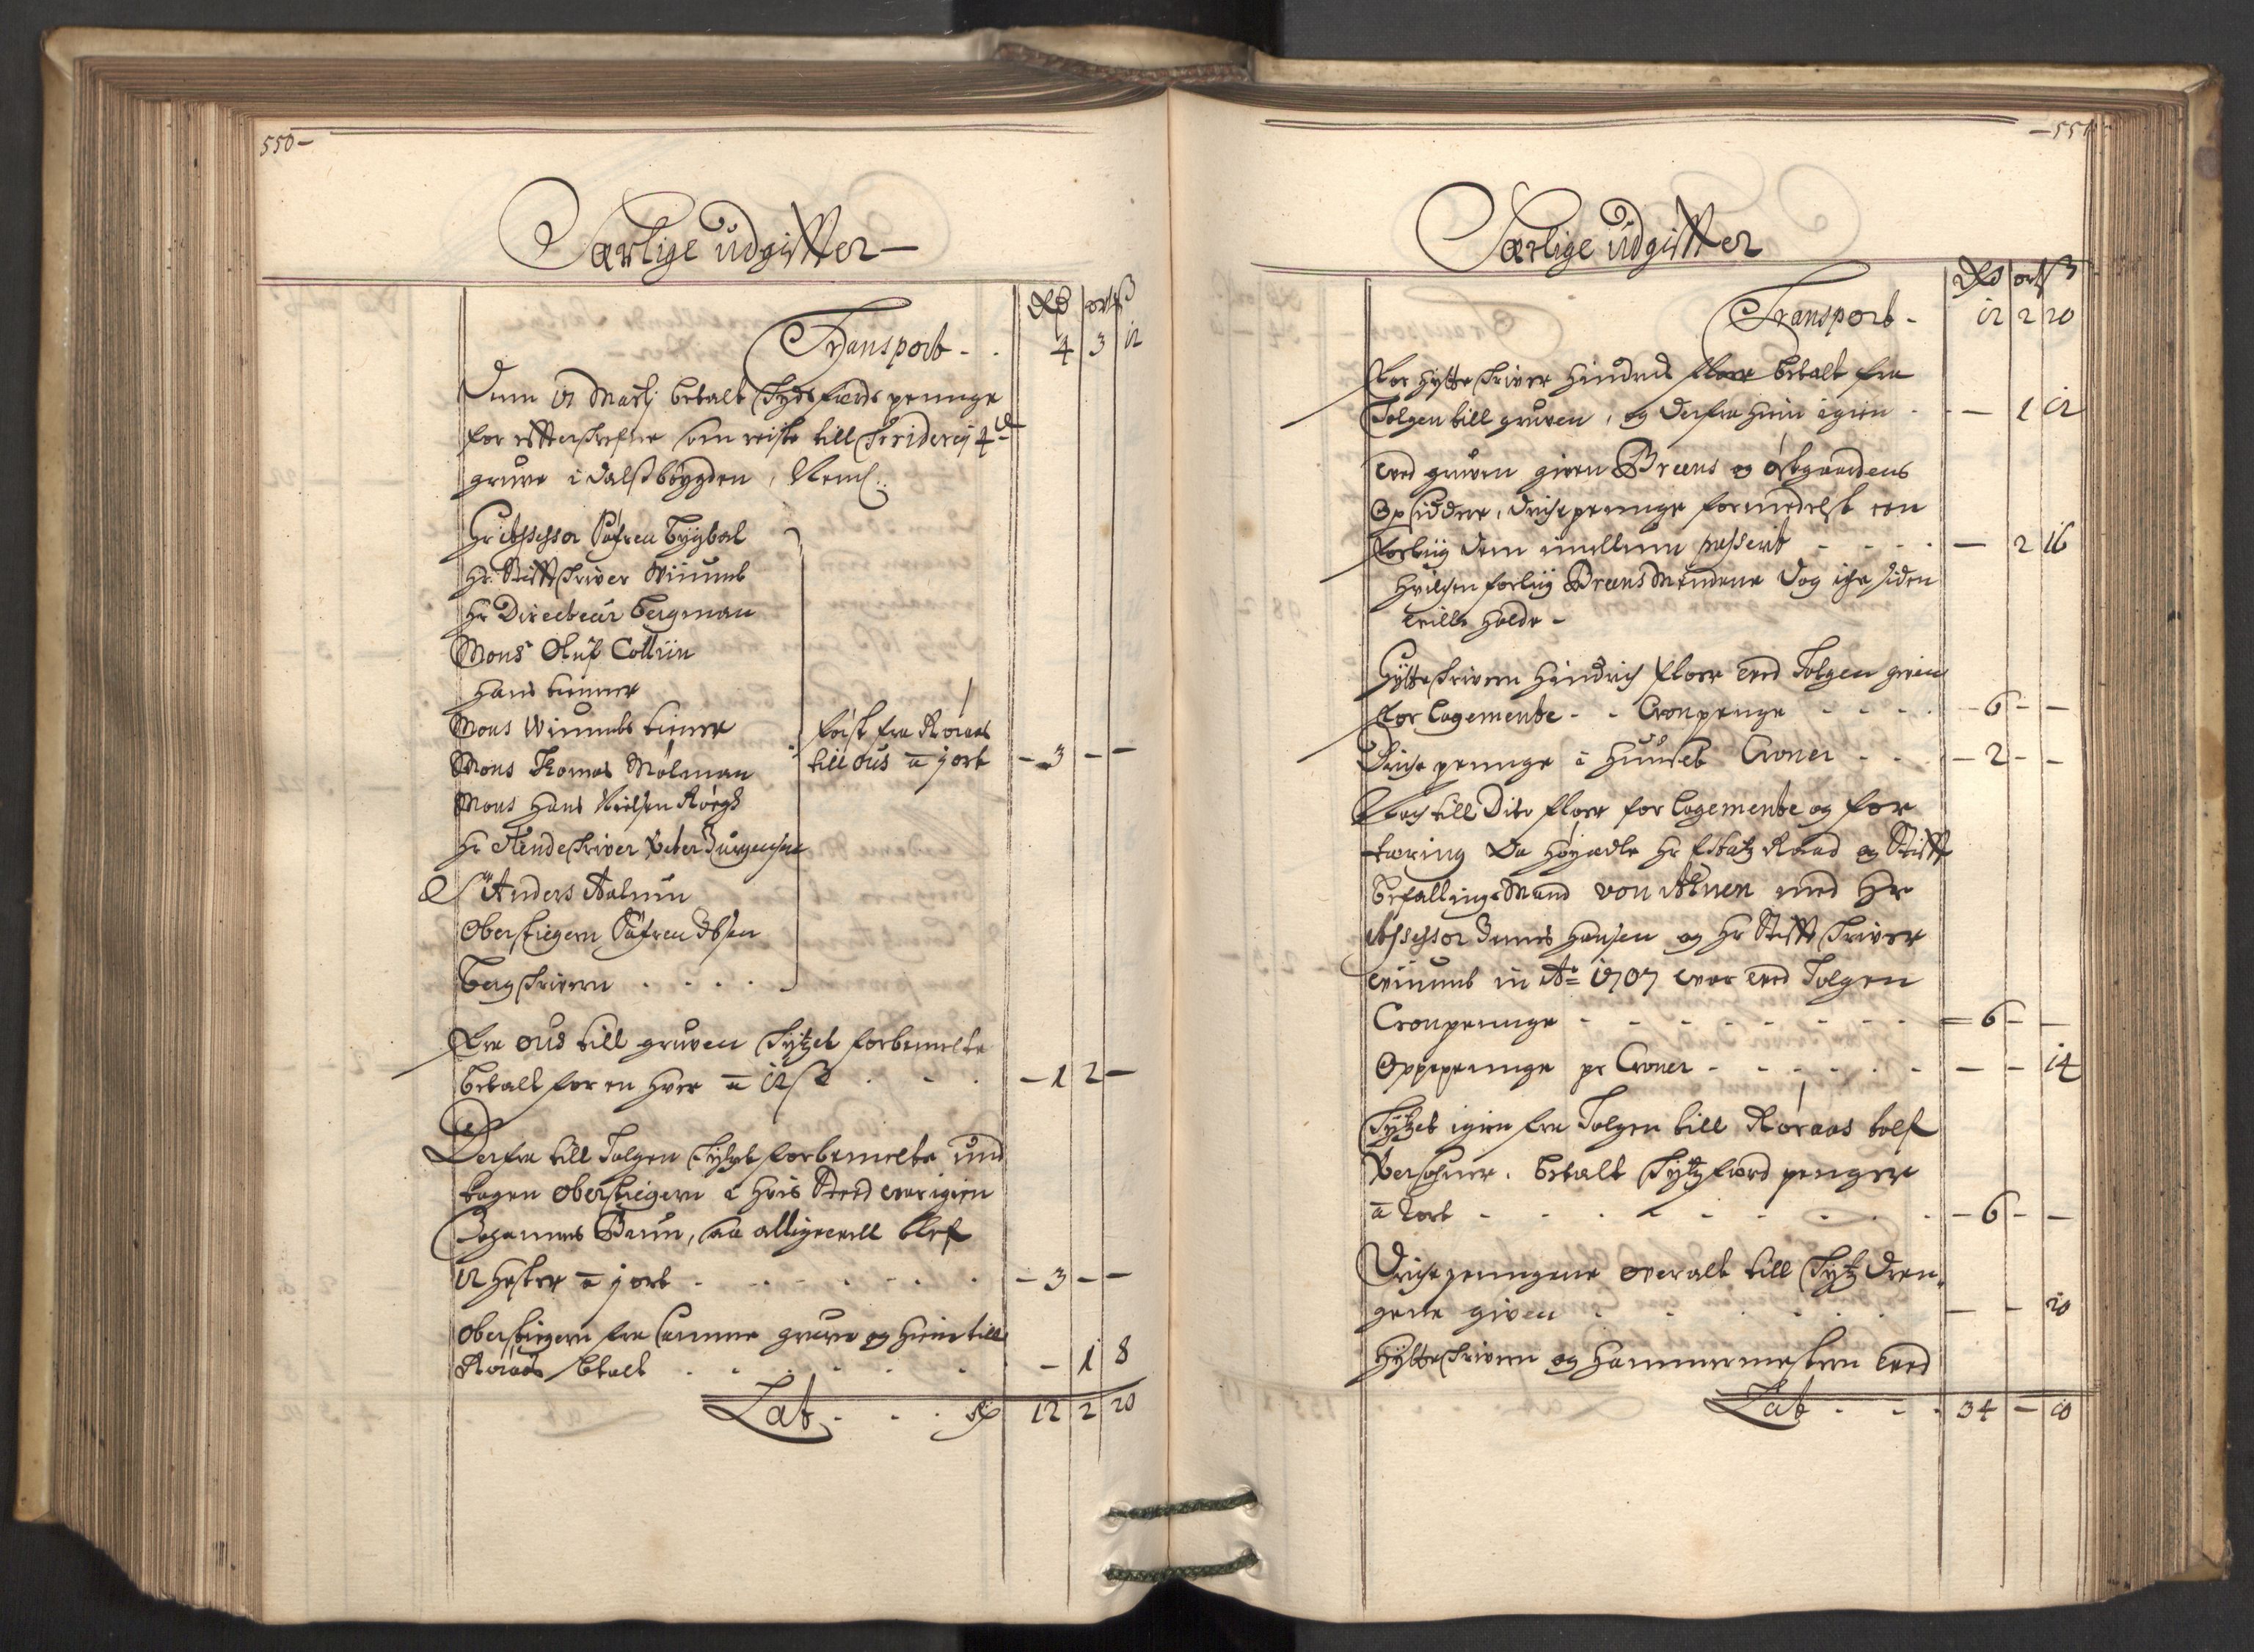 550-
Særlige udgiffter-
Rd ort ß
Transport - - 4 3 12
Dend 17 Martj betalt skydsferds penge
for efftersrefne som reiste till Friderig 4de
gruve i Dalsbøygden, Neml:
Hr Assessor Søfren Bÿgbal
Hr Stifftskriver Winumb
Hr Directeur Bergman
Monsr Oluf Collin
Hans tienner
Mons Winumbs tienner
Mons Thomas Mølman
Mons Hans Nielsen
Hr Tiendeskriver Peter Jürgensen
Sr Anders Aalrun
Oberstiegern Søfren Ibsen
Bergskriveren - - - -
først fra Røraas
till ous a j ort - 3 - -
Fra ous till gruven skÿtzet forbemelte
betalt for en hver a 12 ß - - - 1 2 -
Derfra till Tolgen skÿtzet forbemelte und
tagen oberstiegern i hvis sted war igien
Johannes Bruun, saa alligevell blef
12 hester a j ort - - - 3 - -
Oberstiegern fra samme gruve og hiem till
Røraas betalt - 1 8
Lat - - - Rd 12 2 20
-551
Særlige udgiffter
Rd ort ß
Transport - 12 2 20
For hÿtteskriver Hindrich Floer betalt fra
Tolgen till gruven, og derfra hiem igien - - 1 12
Ved gruven given Breens og Østgaardens
Opsiddere, drichepenge formedelst een
forliig dem imellem passerit - - - - 2 16
Hvilchen forliig Breens Mændene dog iche siden
wille holde -
Hÿtteskriveren Hindrich Floer ved Tolgen given
for Logemente - - Cronpenge - - - - 6 - -
Driche penge i Huuset Croner - - - 2 - -
Noch till Dito Floer for Logemente og for
tæring da høyædle Hr Etatz Raad og Stifft
befallings Mand von Ahnen med Hr
Assessor Jens Hansen og Hr Stifft Skriver
Winumb in Ao 1707 war ved Tolgen
Cronpenge - - - - - - - 6 - -
Oppepenge pr Croner - - - - - - - - 14
Skÿtzet igien fra Tolgen till Røraas tolf
Persohner. betalt Skÿtzferd penger
a 2 ort - - - - - - - 6 - -
Drichepengene overalt till Skÿtz dren-
gene given - - - - - - 20
Hÿtteskriveren og Hammermesteren ved
Lat - - - 34 - 10